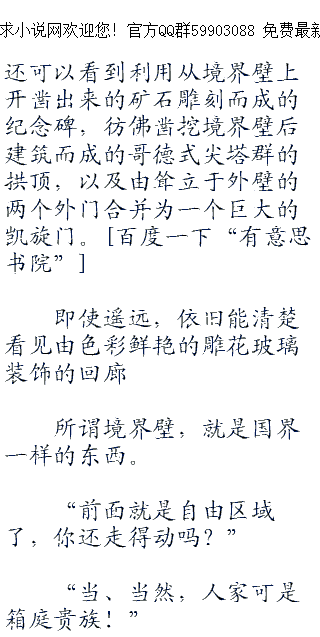 求小说网欢迎您！官方QQ群59903088 免费最新
还可以看到利用从境界壁上
开凿出来的矿石雕刻而成的
纪念碑，彷佛凿挖境界壁后
建筑而成的哥德式尖塔群的
拱顶，以及由耸立于外壁的
两个外门合并为一个巨大的
凯旋门。[百度一下“有意思
书院”]
即使遥远，依旧能清楚
看见由色彩鲜艳的雕花玻璃
装饰的回廊
所谓境界壁，就是国界
一样的东西。
“前面就是自由区域
了，你还走得动吗？”
“当、当然，人家可是
箱庭贵族！”